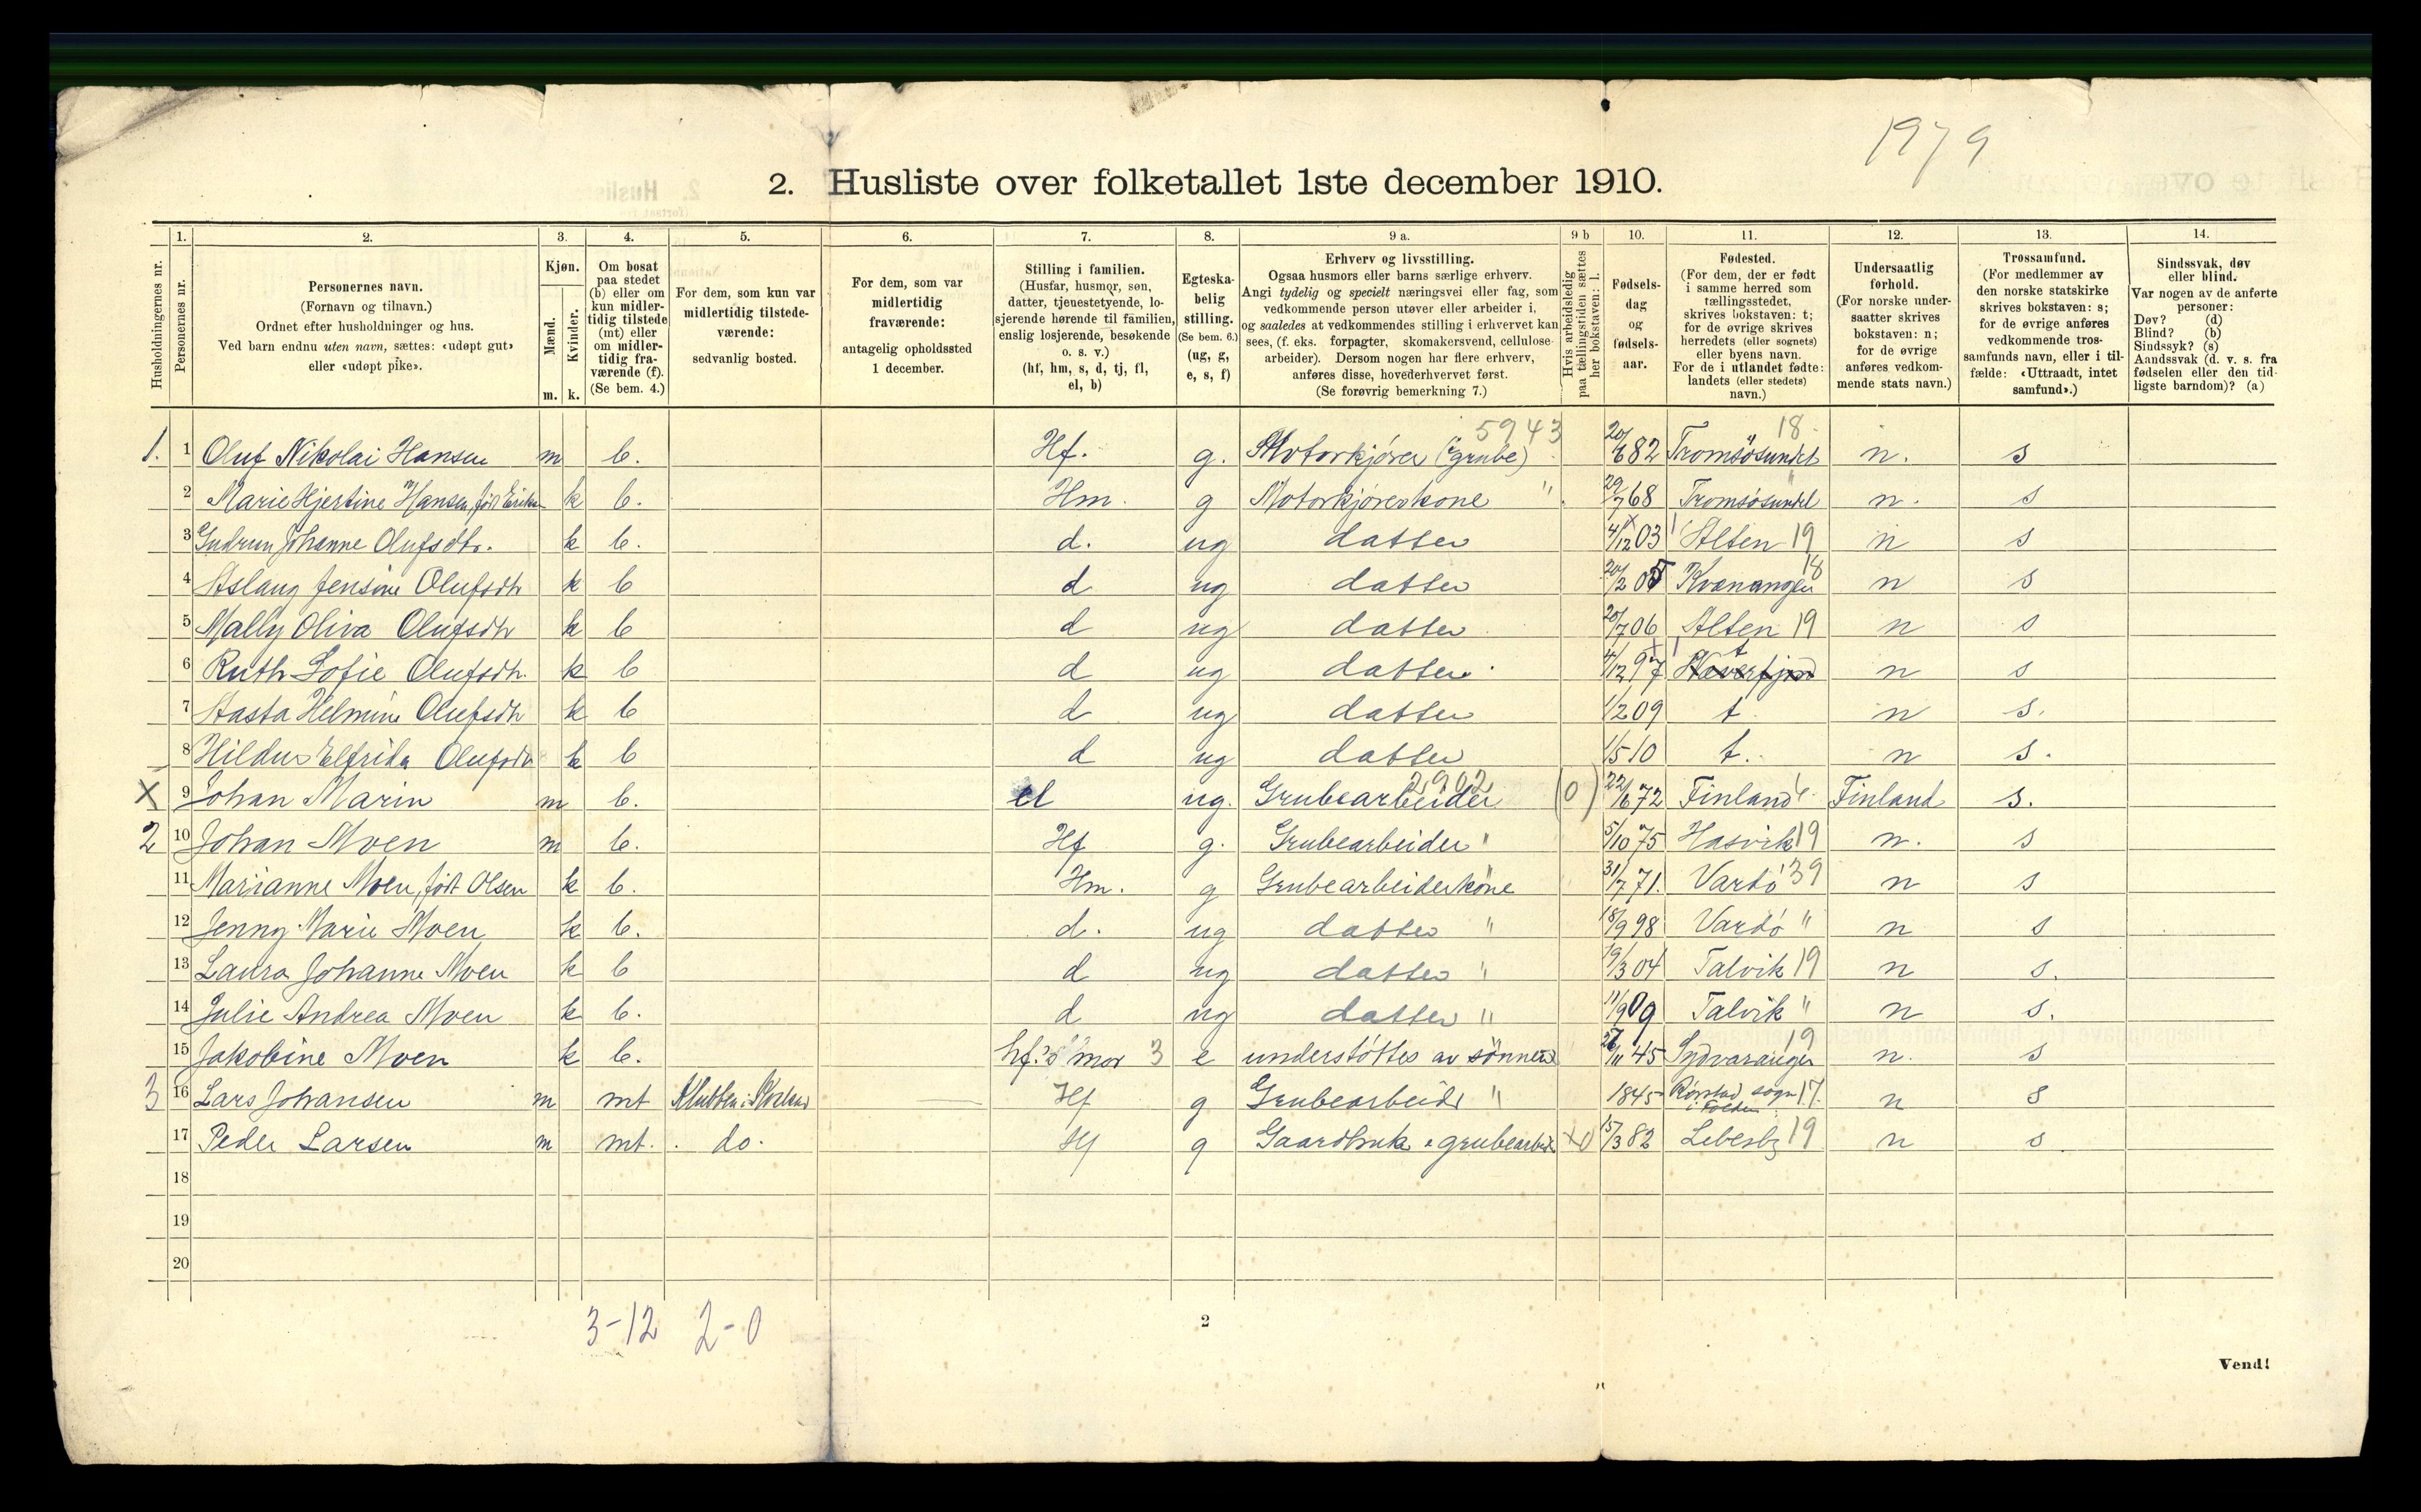 1979
2. Husliste over folketallet 1ste december 1910.
Husholdningernes nr.
1. Personernes nr.
2. Personernes navn.
(Fornavn og tilnavn.)
Ordnet efter husholdninger og hus.
Ved barn endnu uten navn, sættes: «udøpt gut»
eller «udøpt pike».
3. Kjøn.
Mænd. Kvinder.
m. k.
4. Om bosat
paa stedet
(b) eller om
kun midler-
tidig tilstede
(mt) eller
om midler-
tidig fra-
værende (f).
(Se bem. 4.)
5. For dem, som kun var
midlertidig tilstede-
værende:
sedvanlig bosted.
6. For dem, som var
midlertidig
fraværende:
antagelig opholdssted
1 december.
7. Stilling i familien.
(Husfar, husmor, søn,
datter, tjenestetyende, lo-
sjerende hørende til familien,
enslig losjerende, besøkende
o. s. v.)
(hf, hm, s, d, tj, fl,
el, b)
8. Egteska-
belig
stilling.
(Se bem. 6.)
(ug, g,
e, s, f)
9 a. Erhverv og livsstilling.
Ogsaa husmors eller barns særlige erhverv.
Angi tydelig og specielt næringsvei eller fag, som
vedkommende person utøver eller arbeider i,
og saaledes at vedkommendes stilling i erhvervet kan
sees, (f. eks. forpagter, skomakersvend, cellulose-
arbeider). Dersom nogen har flere erhverv,
anføres disse, hovederhvervet først.
(Se forøvrig bemerkning 7.)
9 b Hvis arbeidsledig
paa tællingstiden sættes
her bokstaven: l.
10. Fødsels-
dag
og
fødsels-
aar.
11. Fødested.
(For dem, der er født
i samme herred som
tællingsstedet,
skrives bokstaven: t;
for de øvrige skrives
herredets (eller sognets)
eller byens navn.
For de i utlandet fødte:
landets (eller stedets)
navn.)
12. Undersaatlig
forhold.
(For norske under-
saatter skrives
bokstaven: n;
for de øvrige
anføres vedkom-
mende stats navn.)
13. Trossamfund.
(For medlemmer av
den norske statskirke
skrives bokstaven: s;
for de øvrige anføres
vedkommende tros-
samfunds navn, eller i til-
fælde: «Uttraadt, intet
samfund».)
14. Sindssvak, døv
eller blind.
Var nogen av de anførte
personer:
Døv? (d)
Blind? (b)
Sindssyk? (s)
Aandssvak (d. v. s. fra
fødselen eller den tid-
ligste barndom)? (a)
5943 18
1. 1 Oluf Nikolai Hansen m b. Hf. g. Motorkjører (grube) 20/6 82 Tromsøsundet n. s
2 Marie Hjertine Hansen, født k b. Hm. g Motorkjørerkone " 29/7 68 Tromsøsundet n. s
3 Gudrun Johanne Olufsdtr. k b. d. ug datter 4/12 03 Alten 19 n s
4 Aslaug Jensine Olufsdtr k b d ug datter 20/2 05 Kvænangen 18 n s
5 Mally Oliva Olufsdtr k b d ug datter 20/7 06 Alten 19 n s
6 Ruth Sofie Olufsdtr. k b d ug datter 4/12 07 t n s
7 Aasta Helmine Olufsdtr k b d ug datter 1/2 09 t n s.
8 Hildur Elfrida Olufsdtr k b d ug datter 1/5 10 t. n s.
X 9 Johan Marin m b. el ug. Grubearbeider 2902 (0) 22/6 72 Finland Finland s.
2 10 Johan Moen m b. Hf g. Grubearbeider " 5/10 75 Hasvik 19 n. s
11 Marianne Moen, født Olsen k b. Hm. g Grubearbeiderkone 31/7 71. Vardø 39 n s
12 Jenny Marie Moen k b. d. ug datter " 18/9 98 Vardø " n s
13 Laura Johanne Moen k b d ug datter " 19/3 04 Talvik 19 n s.
14 Julie Andrea Moen k b. d ug datter " 11/9 09 Talvik " n s.
15 Jakobine Moen k b. hf.'s mor 3 e understøttes av sønnen 26/11 45 Sydvaranger 19 n. s
3 16 Lars Johansen m mt Klubben i Hf g Grubearbeider " 1845 Rørstad sogn i Folden 17. n s
17 Peder Larsen m mt. do. Hf g Gaardbruk & grubearbeid x0 15/3 82 Lebesby 19 n s
18
19
20
3-12 2-0
2
Vend!